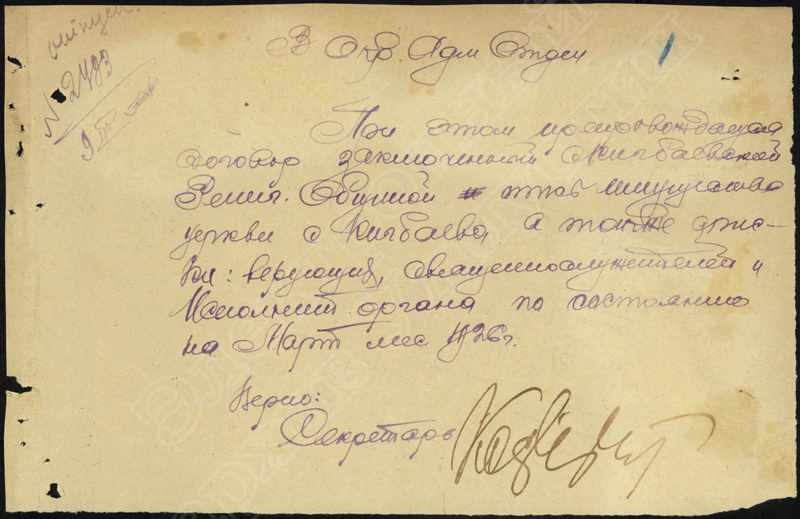 № 2483
В Окр. Адм Отдел
1
При этом препровождается
договор заключенный с Кигбаевской
Религ. Общиной на имущество
церкви с Кигбаева а также спис-
ки: верующих, священнослужителей и
Исполнит органа по состоянию
на Март мес 1926 г.
Верно:
Секретарь